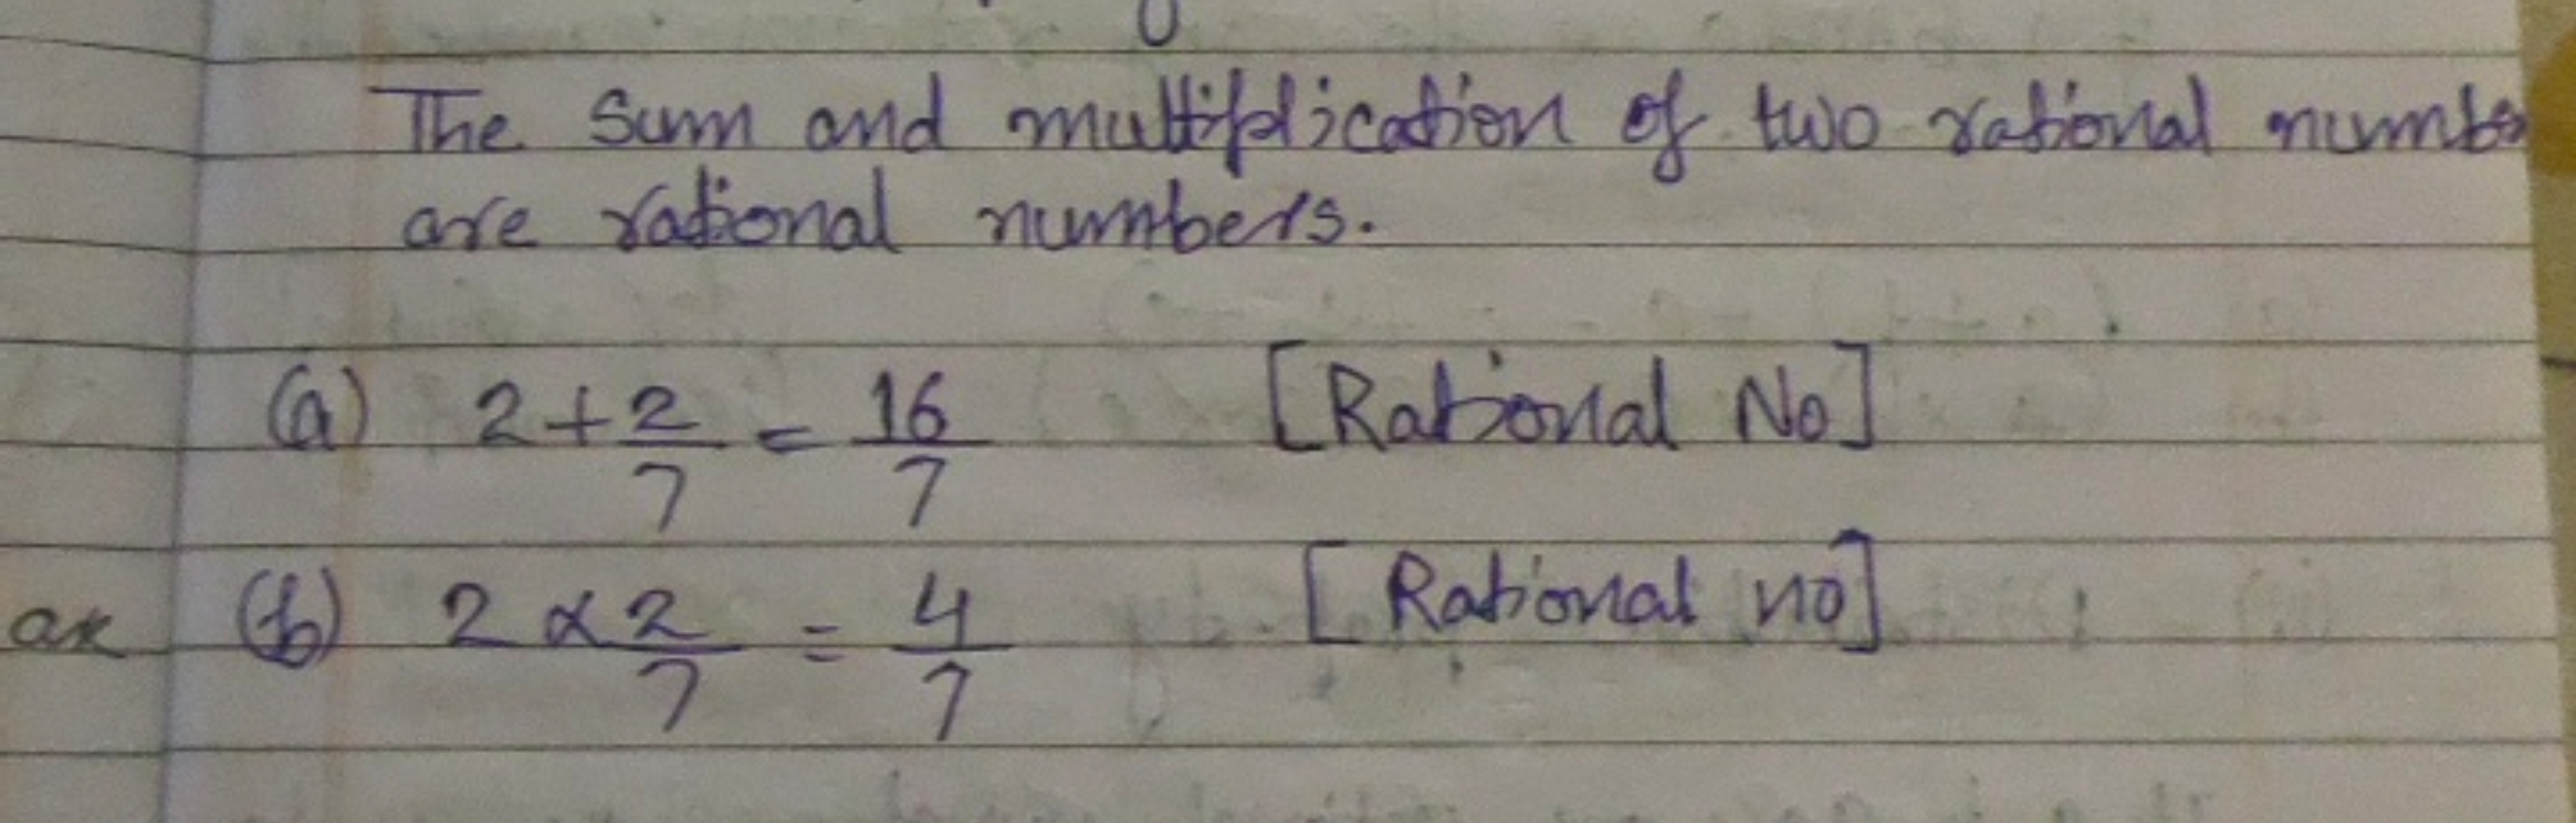 The sum and multiplication of two rational numbe
are rational numbers.
(a) 2 + 2/7 = 16/7 [Rational No]
(b) 2 × 2/7 = 4/7 [Rational no]